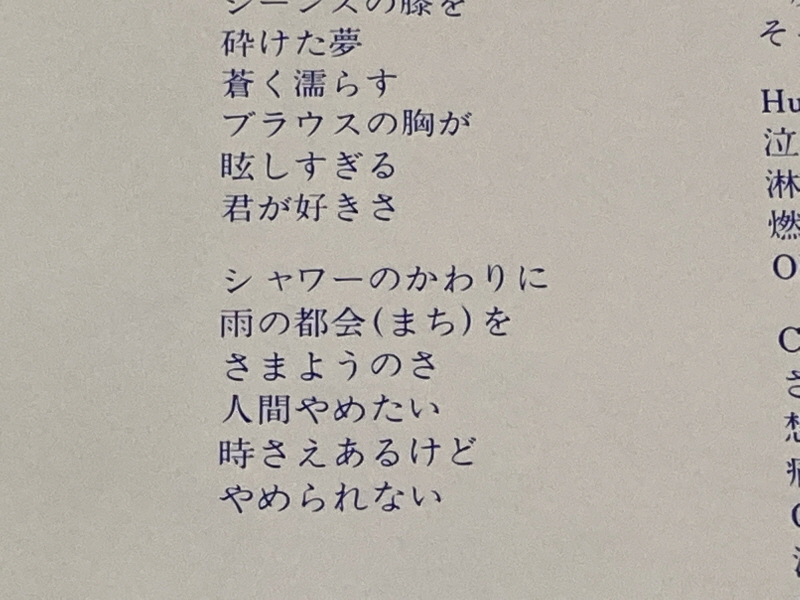 ジーンズの膝を
砕けた夢
蒼く濡らす
ブラウスの胸が
眩しすぎる
君が好きさ
シャワーのかわりに
雨の都会(まち)を
さまようのさ
人間やめたい
時さえあるけど
やめられない
そ
Hu
泣
淋
燃
O
C
さ
想